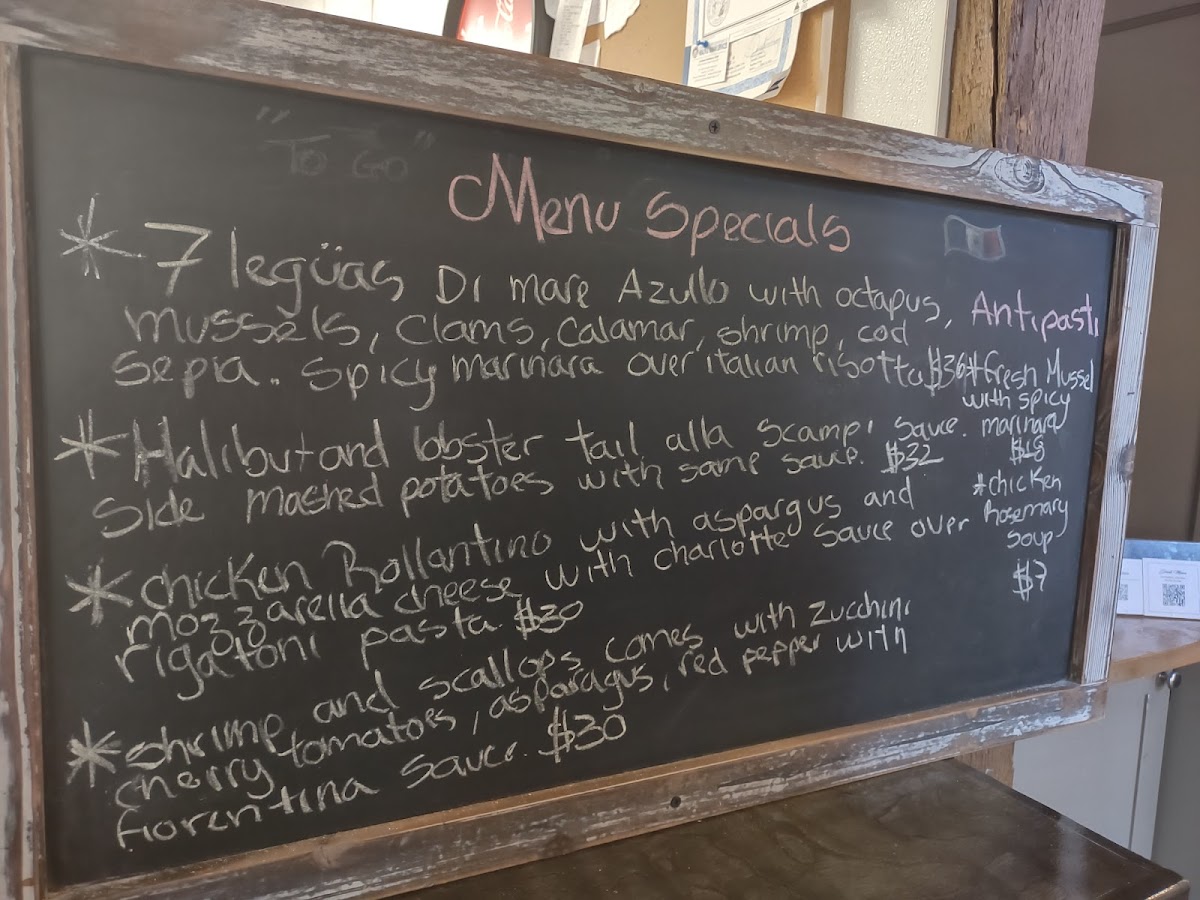 "To Go"
Menu Specials
* 7 legüas Di mare Azullo with octapus,
mussels, clams, calamar, shrimp, cod
sepia. Spicy marinara over italian risotto $36
* Halibut and lobster tail alla scampi sauce.
Side mashed potatoes with same sauce. $32
* chicken Rollantino with aspargus and
mozzarella cheese with charlotte sauce over
rigatoni pasta. $30
* shrimp and scallops comes with zucchini
cherry tomatoes, asparagus, red pepper with
fiorentina sauce. $30
Antipasti
* fresh Mussel
with spicy
marinara
* chicken
Rosemary
soup
$7